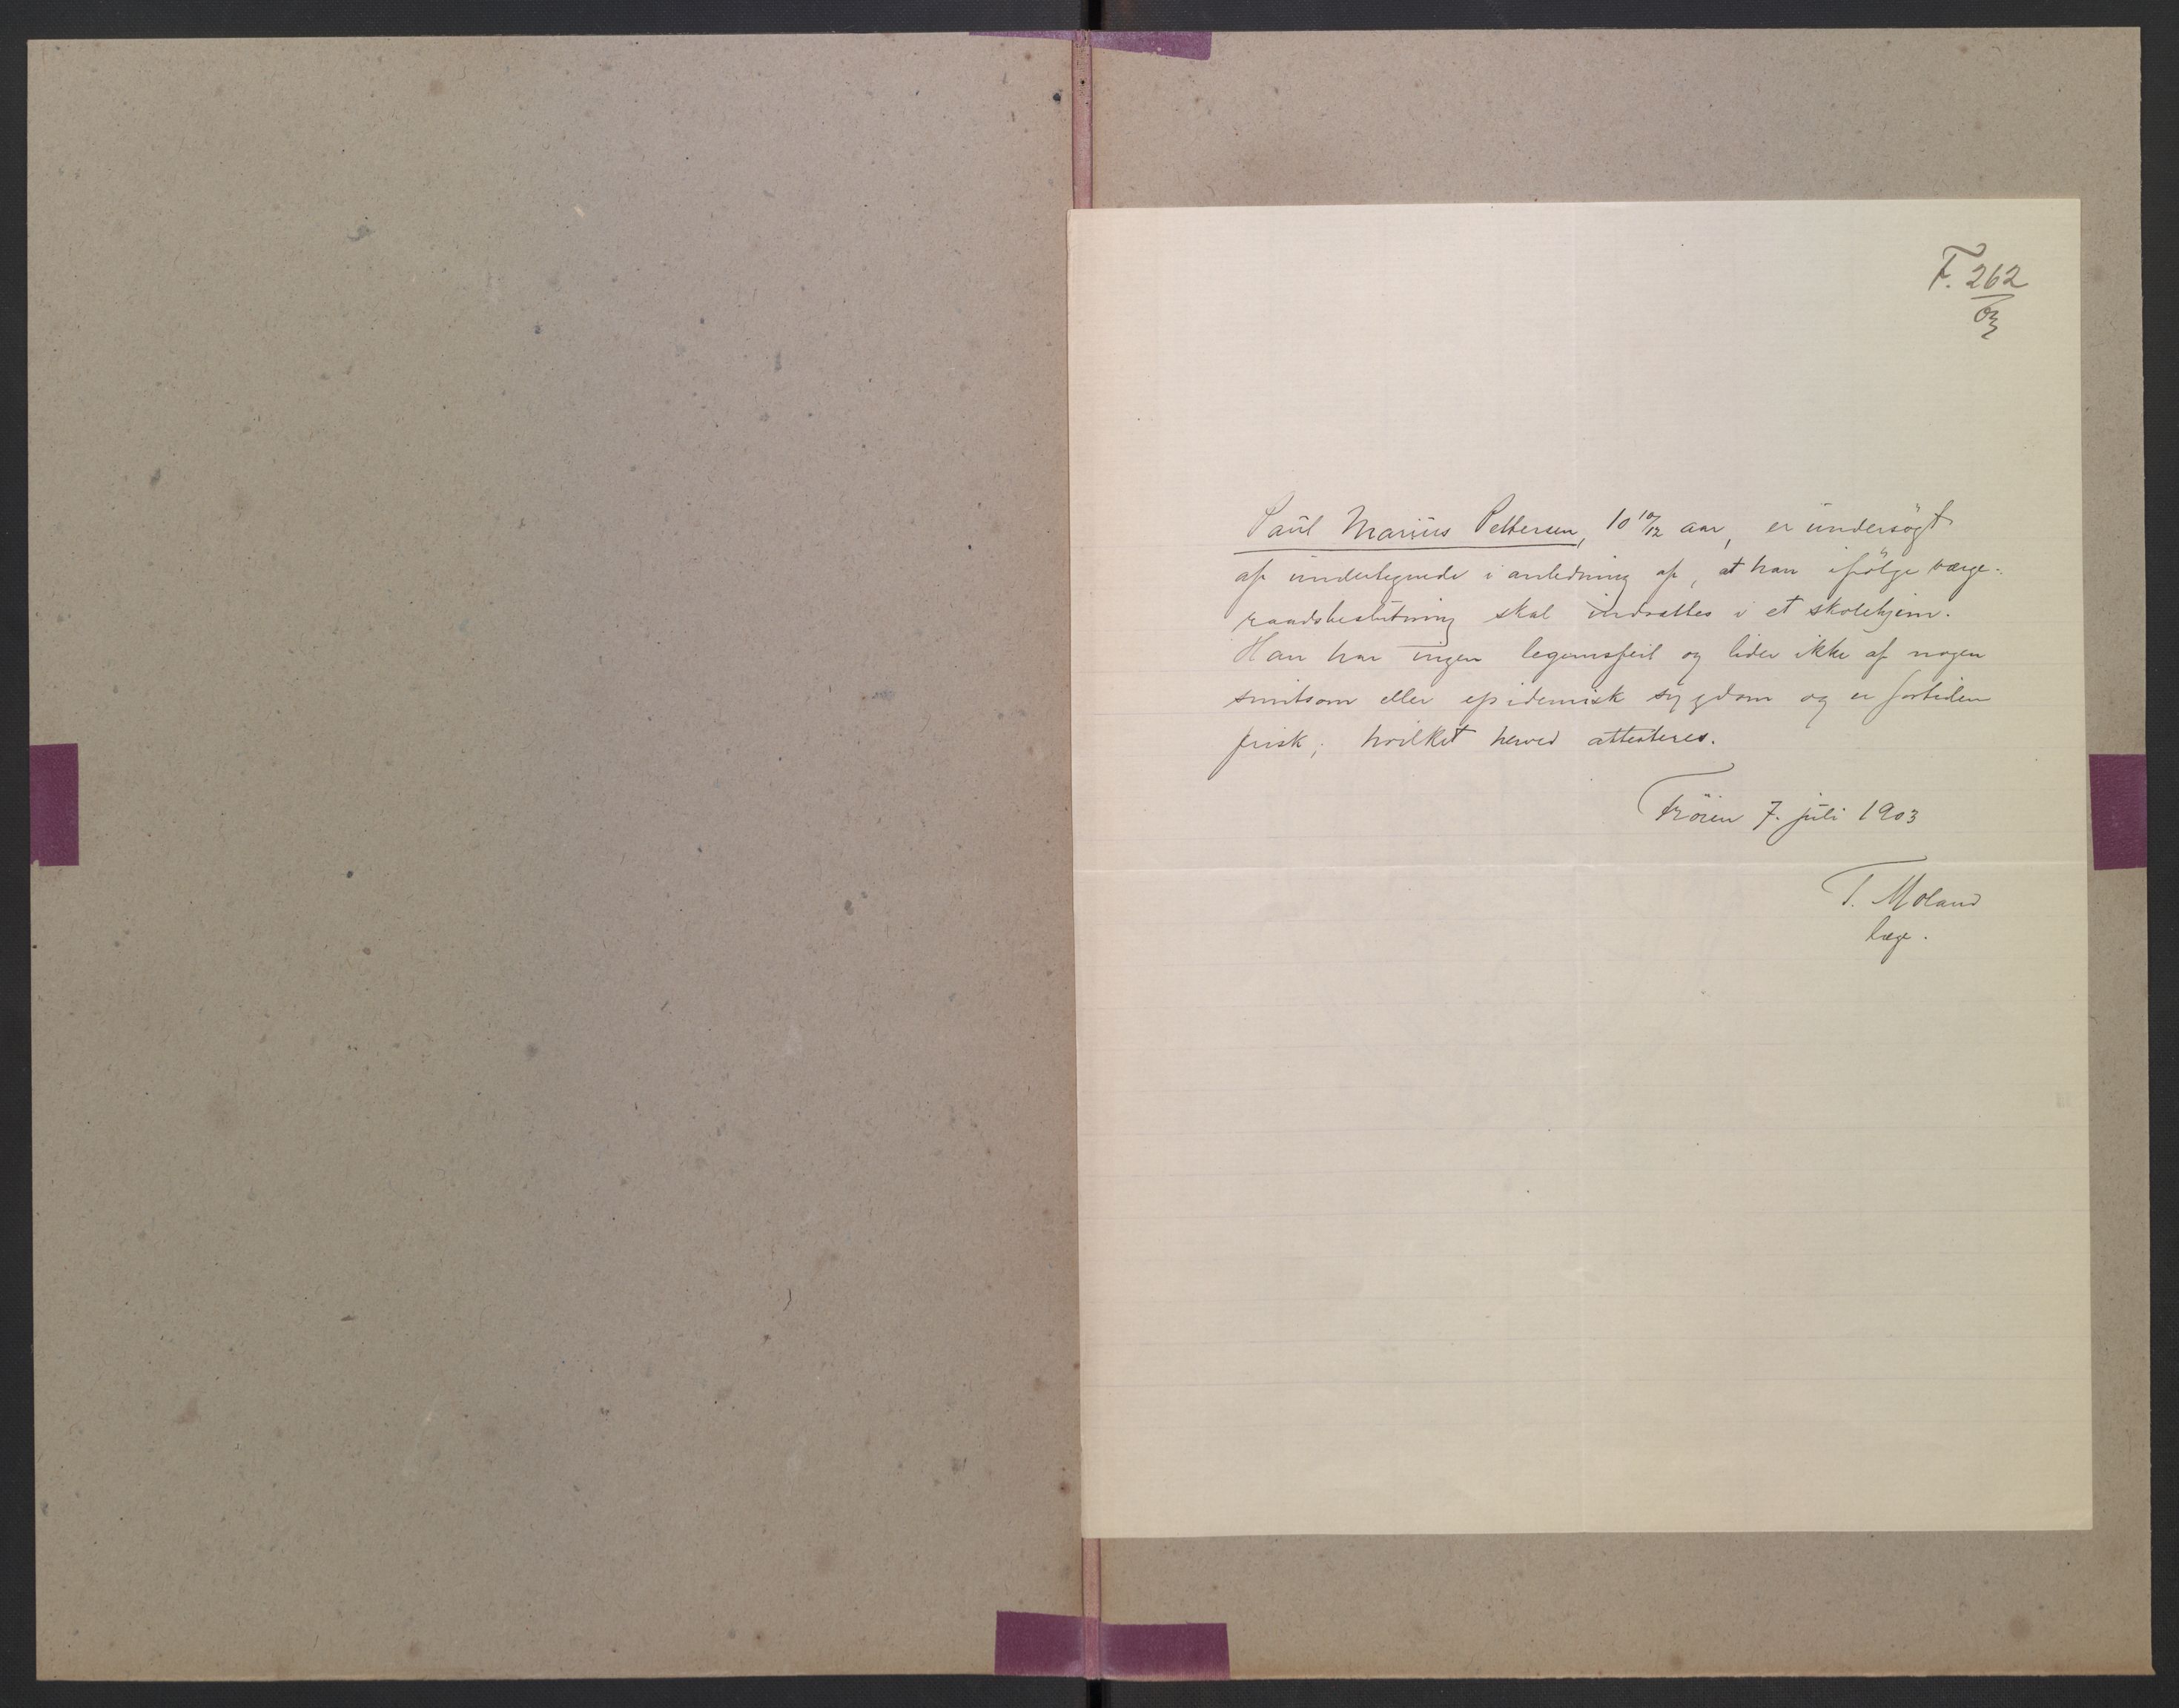 F. 262
03
Paul Marius Pettersen, 10 10/12 aar, er undersögt
af undertegnede i anledning af, at han ifölge værge-
raadsbeslutning skal indsættes i et skolehjem.
Han har ingen legemsfeil og lider ikke af nogen
smitsom eller epidemisk sygdom og er fortiden
frisk, hvilket herved attesteres.
Fröien 7. juli 1903
T. Moland
læge.